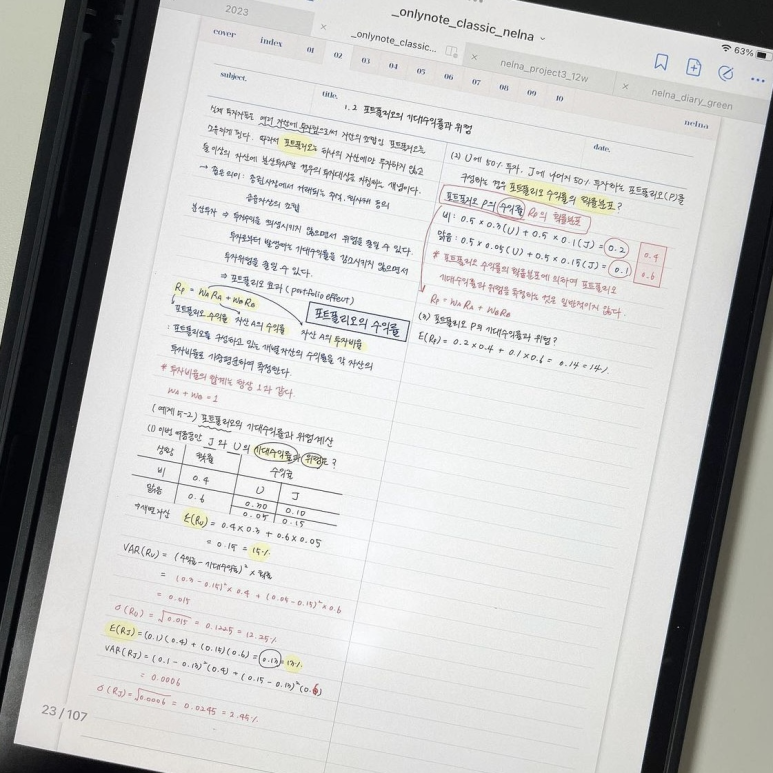 2023
_onlynote_classic_nelna
63%
_onlynote_classic...
nelna_project3_12w
nelna_diary_green
cover index 01 02 03 04 05 06 07 08 09 10
nelna
subject.
title.
date.
1.2 포트폴리오의 기대수익률과 위험
실제 투자자들은 여러 자산에 투자함으로써 자산의 조합인 포트폴리오를
보유하게 된다. 따라서 포트폴리오는 하나의 자산에만 투자하지 않고
둘 이상의 자산에 분산투자할 경우의 투자대상을 지칭하는 개념이다.
→ 좁은 의미: 증권시장에서 거래되는 주식, 회사채 등의
금융자산의 조합
분산투자 ⇒ 투자수익을 희생시키지 않으면서 위험을 줄일 수 있다.
투자로부터 발생하는 기대수익률을 감소시키지 않으면서
투자위험을 줄일 수 있다.
⇒ 포트폴리오 효과(portfolio effect)
Rp = WARA + WBRB
포트폴리오의 수익률
포트폴리오 수익률 자산 A의 수익률 자산 A의 투자비율
: 포트폴리오를 구성하고 있는 개별자산의 수익률을 각 자산의
투자비율로 가중평균하여 측정한다.
* 투자비율의 합계는 항상 1과 같다.
WA + WB = 1
(예제 5-2) 포트폴리오의 기대수익률과 위험계산
(1) 이번 여름동안 J와 U의 기대수익률과 위험도?
상황 확률 수익률
U J
비 0.4 0.30 0.10
맑음 0.6 0.05 0.15
→개별자산 E(RU) = 0.4×0.3 + 0.6×0.05
= 0.15 = 15%
VAR(RU) = (수익률-기대수익률)² × 확률
= (0.3-0.15)² × 0.4 + (0.05-0.15)² × 0.6
= 0.015
σ(RU) = √0.015 = 0.1225 = 12.25%
E(RJ) = (0.1)(0.4) + (0.15)(0.6) = 0.13 = 13%
VAR(RJ) = (0.1-0.13)²(0.4) + (0.15-0.13)²(0.6)
= 0.0006
σ(RJ) = √0.0006 = 0.0245 = 2.45%
(2) U에 50% 투자, J에 나머지 50% 투자하는 포트폴리오(P)를
구성하는 경우 포트폴리오 수익률의 확률분포?
포트폴리오 P의 수익률 Rp의 확률분포
비: 0.5×0.3(U) + 0.5×0.1(J) = 0.2 0.4
맑음: 0.5×0.05(U) + 0.5×0.15(J) = 0.1 0.6
* 포트폴리오 수익률의 확률분포에 의하여 포트폴리오
기대수익률과 위험을 측정하는 것은 일반적이지 않다.
Rp = WARA + WBRB
(3) 포트폴리오 P의 기대수익률과 위험?
E(Rp) = 0.2×0.4 + 0.1×0.6 = 0.14 = 14%
23 / 107